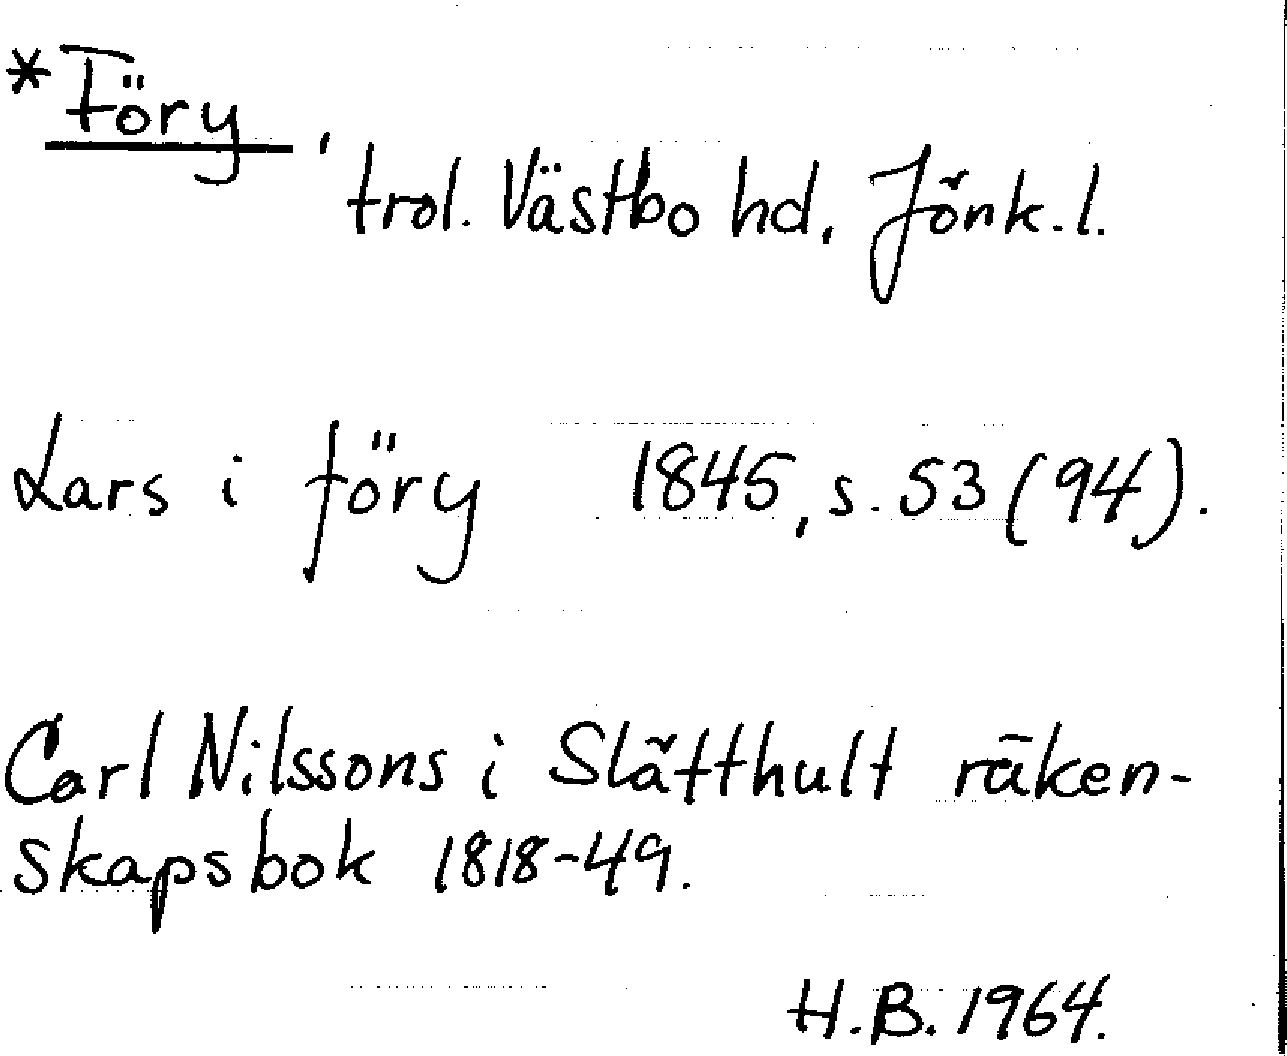 *Föry,
trol. Västbo hd. Jönk. l.
Lars i föry 1845, s. 53 (94).
Carl Nilssons i Slätthult räken-
skapsbok 1818-49.
H.B. 1964.